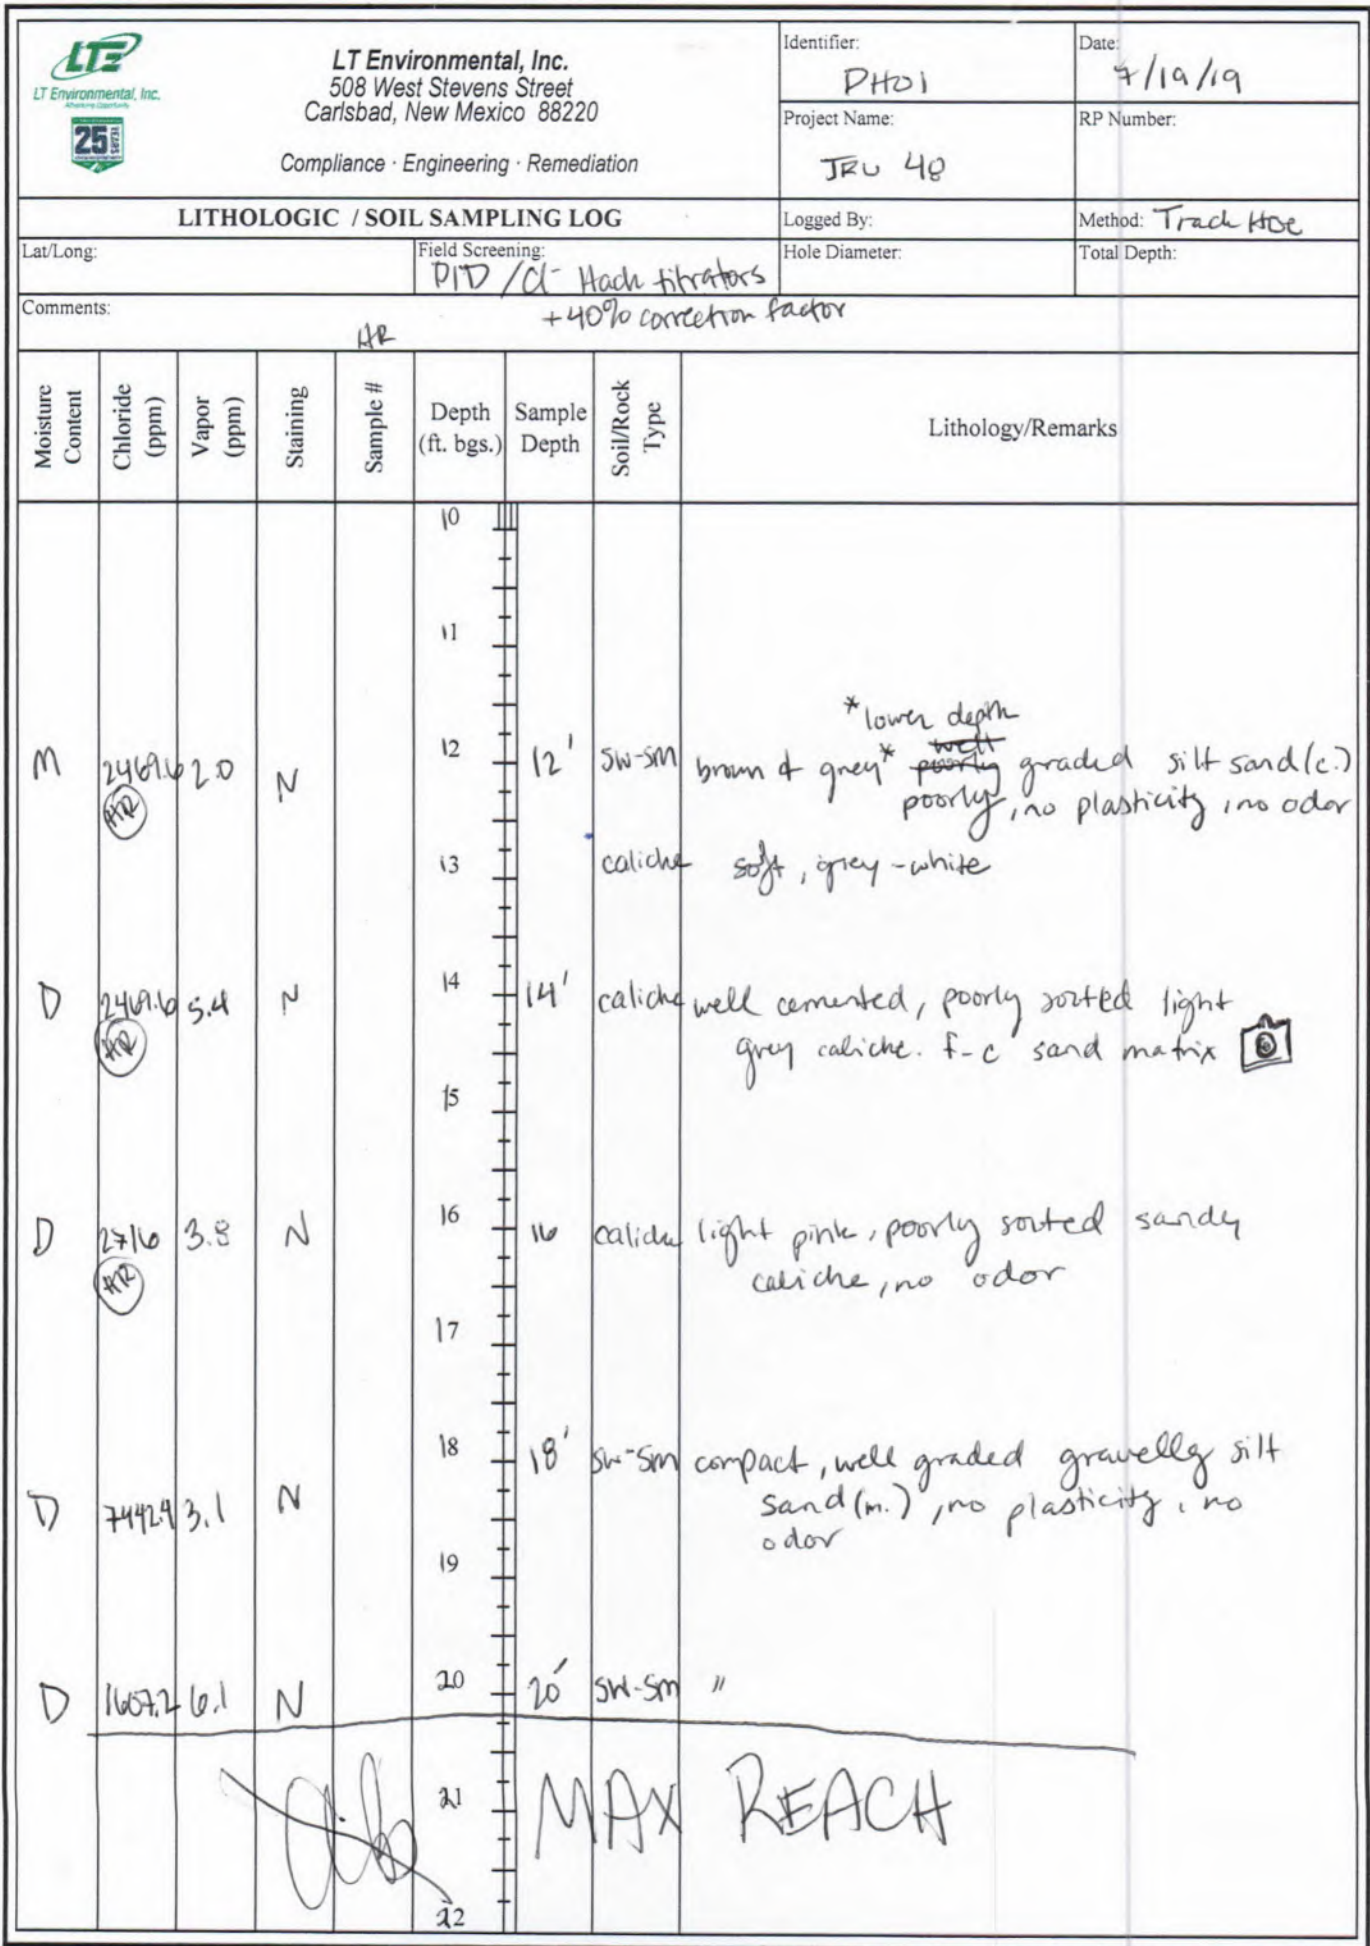 LTE
LT Environmental, Inc.
Advancing Opportunity
25 YEARS
LT Environmental, Inc.
508 West Stevens Street
Carlsbad, New Mexico 88220
Compliance · Engineering · Remediation
Identifier:
PH01
Date:
7/19/19
Project Name:
JRU 48
RP Number:
LITHOLOGIC / SOIL SAMPLING LOG
Logged By:
Method: Track Hoe
Lat/Long:
Field Screening:
PID / Cl- Hach titrators
Hole Diameter:
Total Depth:
Comments:
HR
+40% correction factor
Moisture Content
Chloride (ppm)
Vapor (ppm)
Staining
Sample #
Depth (ft. bgs.)
Sample Depth
Soil/Rock Type
Lithology/Remarks
10
11
* lower depth
M 2469.6 2.0 N 12 12' SW-SM brown & grey* well poorly graded silt sand (c.)
HR poorly, no plasticity, no odor
13 caliche soft, grey-white
D 2469.6 5.4 N 14 14' caliche well cemented, poorly sorted light
HR grey caliche. f-c sand matrix
15
D 2716 3.8 N 16 16 caliche light pink, poorly sorted sandy
HR caliche, no odor
17
18 18' SW-SM compact, well graded gravelly silt
D 7442.4 3.1 N sand (m.), no plasticity, no
odor
19
D 1607.2 6.1 N 20 20' SW-SM "
21 MAX REACH
22